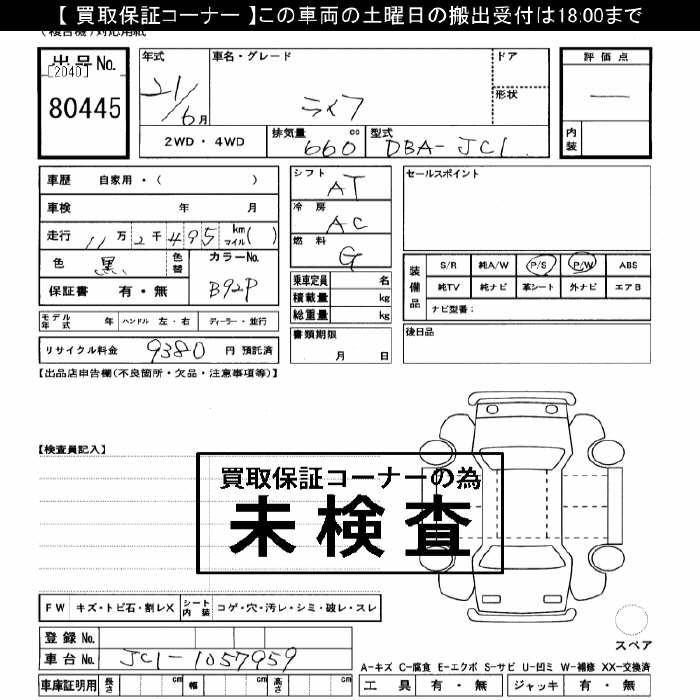 【 買取保証コーナー 】この車両の土曜日の搬出受付は18:00まで
出品No.
[2040]
80445
年式
21/6月
車名・グレード
ライフ
ドア
形状
評価点
―
内装
2WD・4WD
排気量
660 cc
型式
DBA-JC1
車歴 自家用・( )
車検 年 月
走行 11万2千495 km マイル( )
色 黒 色替
カラーNo.
B92P
保証書 有・無
シフト
AT
冷房
AC
燃料
G
乗車定員 名
積載量 kg
総重量 kg
書類期限
月 日
セールスポイント
装備品
S/R 純A/W P/S P/W ABS
純TV 純ナビ 革シート 外ナビ エアB
ナビ型番：
後日品
モデル年式 年 ハンドル 左・右 ディーラー・並行
リサイクル料金 9380 円 預託済
【出品店申告欄(不良箇所・欠品・注意事項等)】
【検査員記入】
買取保証コーナーの為
未検査
FW キズ・トビ石・割レX シート内装 コゲ・穴・汚レ・シミ・破レ・スレ
登録No.
車台No. JC1-1057959
車庫証明用 長さ cm 幅 cm 高さ cm
スペア
A-キズ C-腐食 E-エクボ S-サビ U-凹ミ W-補修 XX-交換済
工具 有・無 ジャッキ 有・無